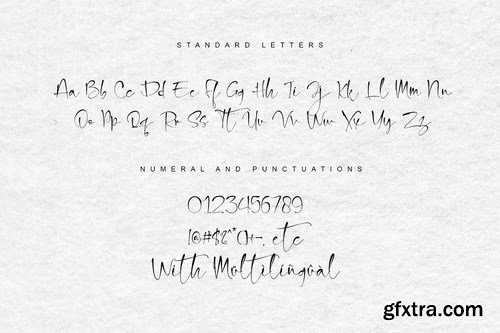 STANDARD LETTERS
Aa Bb Cc Dd Ee Ff Gg Hh Ii Jj Kk Ll Mm Nn
Oo Pp Qq Rr Ss Tt Uu Vv Ww Xx Yy Zz
NUMERAL AND PUNCTUATIONS
0123456789
!@#$%^*()+-, etc
With Moltilingùàl
gfxtra.com